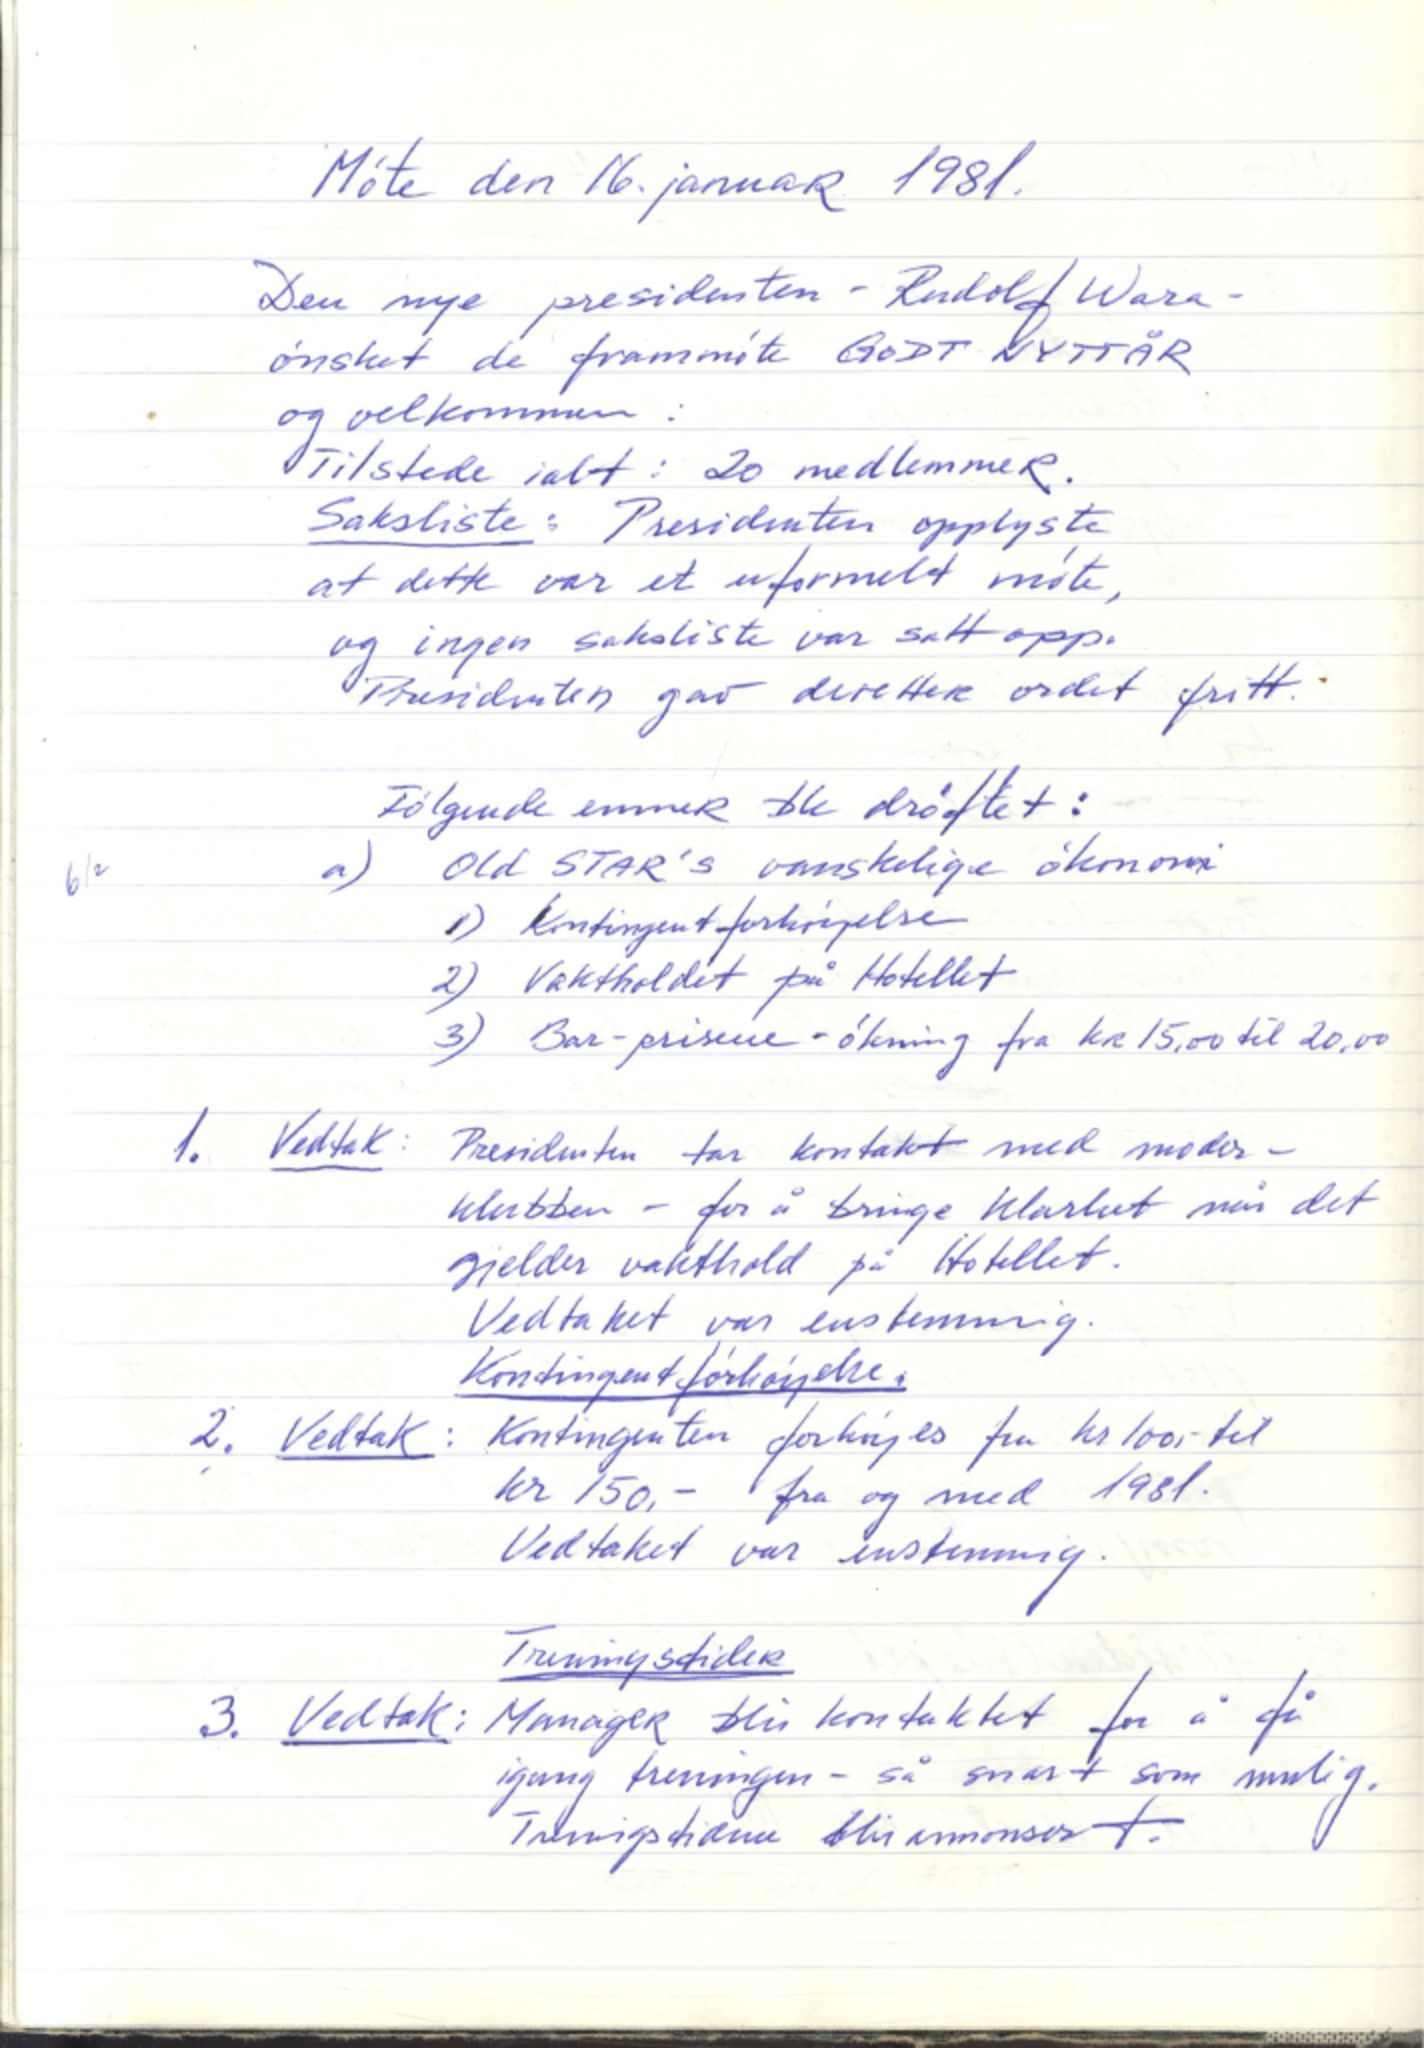 Móte den 16. januar 1981.
Den nye presidenten - Rudolf Wara -
ónsket de frammóte GODT NYTTÅR
og velkommen :
Tilstede ialt : 20 medlemmer.
Saksliste : Presidenten opplyste
at dette var et uformelt móte,
og ingen saksliste var satt opp.
Presidenten gav deretter ordet fritt.
Fólgende emner ble dróftet :
6/2
a) Old STAR'S vanskelige ókonomi
1) Kontingentforhóyelse
2) Vaktholdet på Hotellet
3) Bar-prisene - ókning fra kr 15,00 til 20,00
1. Vedtak : Presidenten tar kontakt med moder-
klubben - for å bringe klarhet når det
gjelder vakthold på Hotellet.
Vedtaket var enstemmig.
Kontingentforhóyelse.
2. Vedtak : Kontingenten forhóyes fra kr 100,- til
kr 150,- fra og med 1981.
Vedtaket var enstemmig.
Treningstider
3. Vedtak : Manager blir kontaktet for å få
igang treningen - så snart som mulig.
Treningstidene blir annonsert.